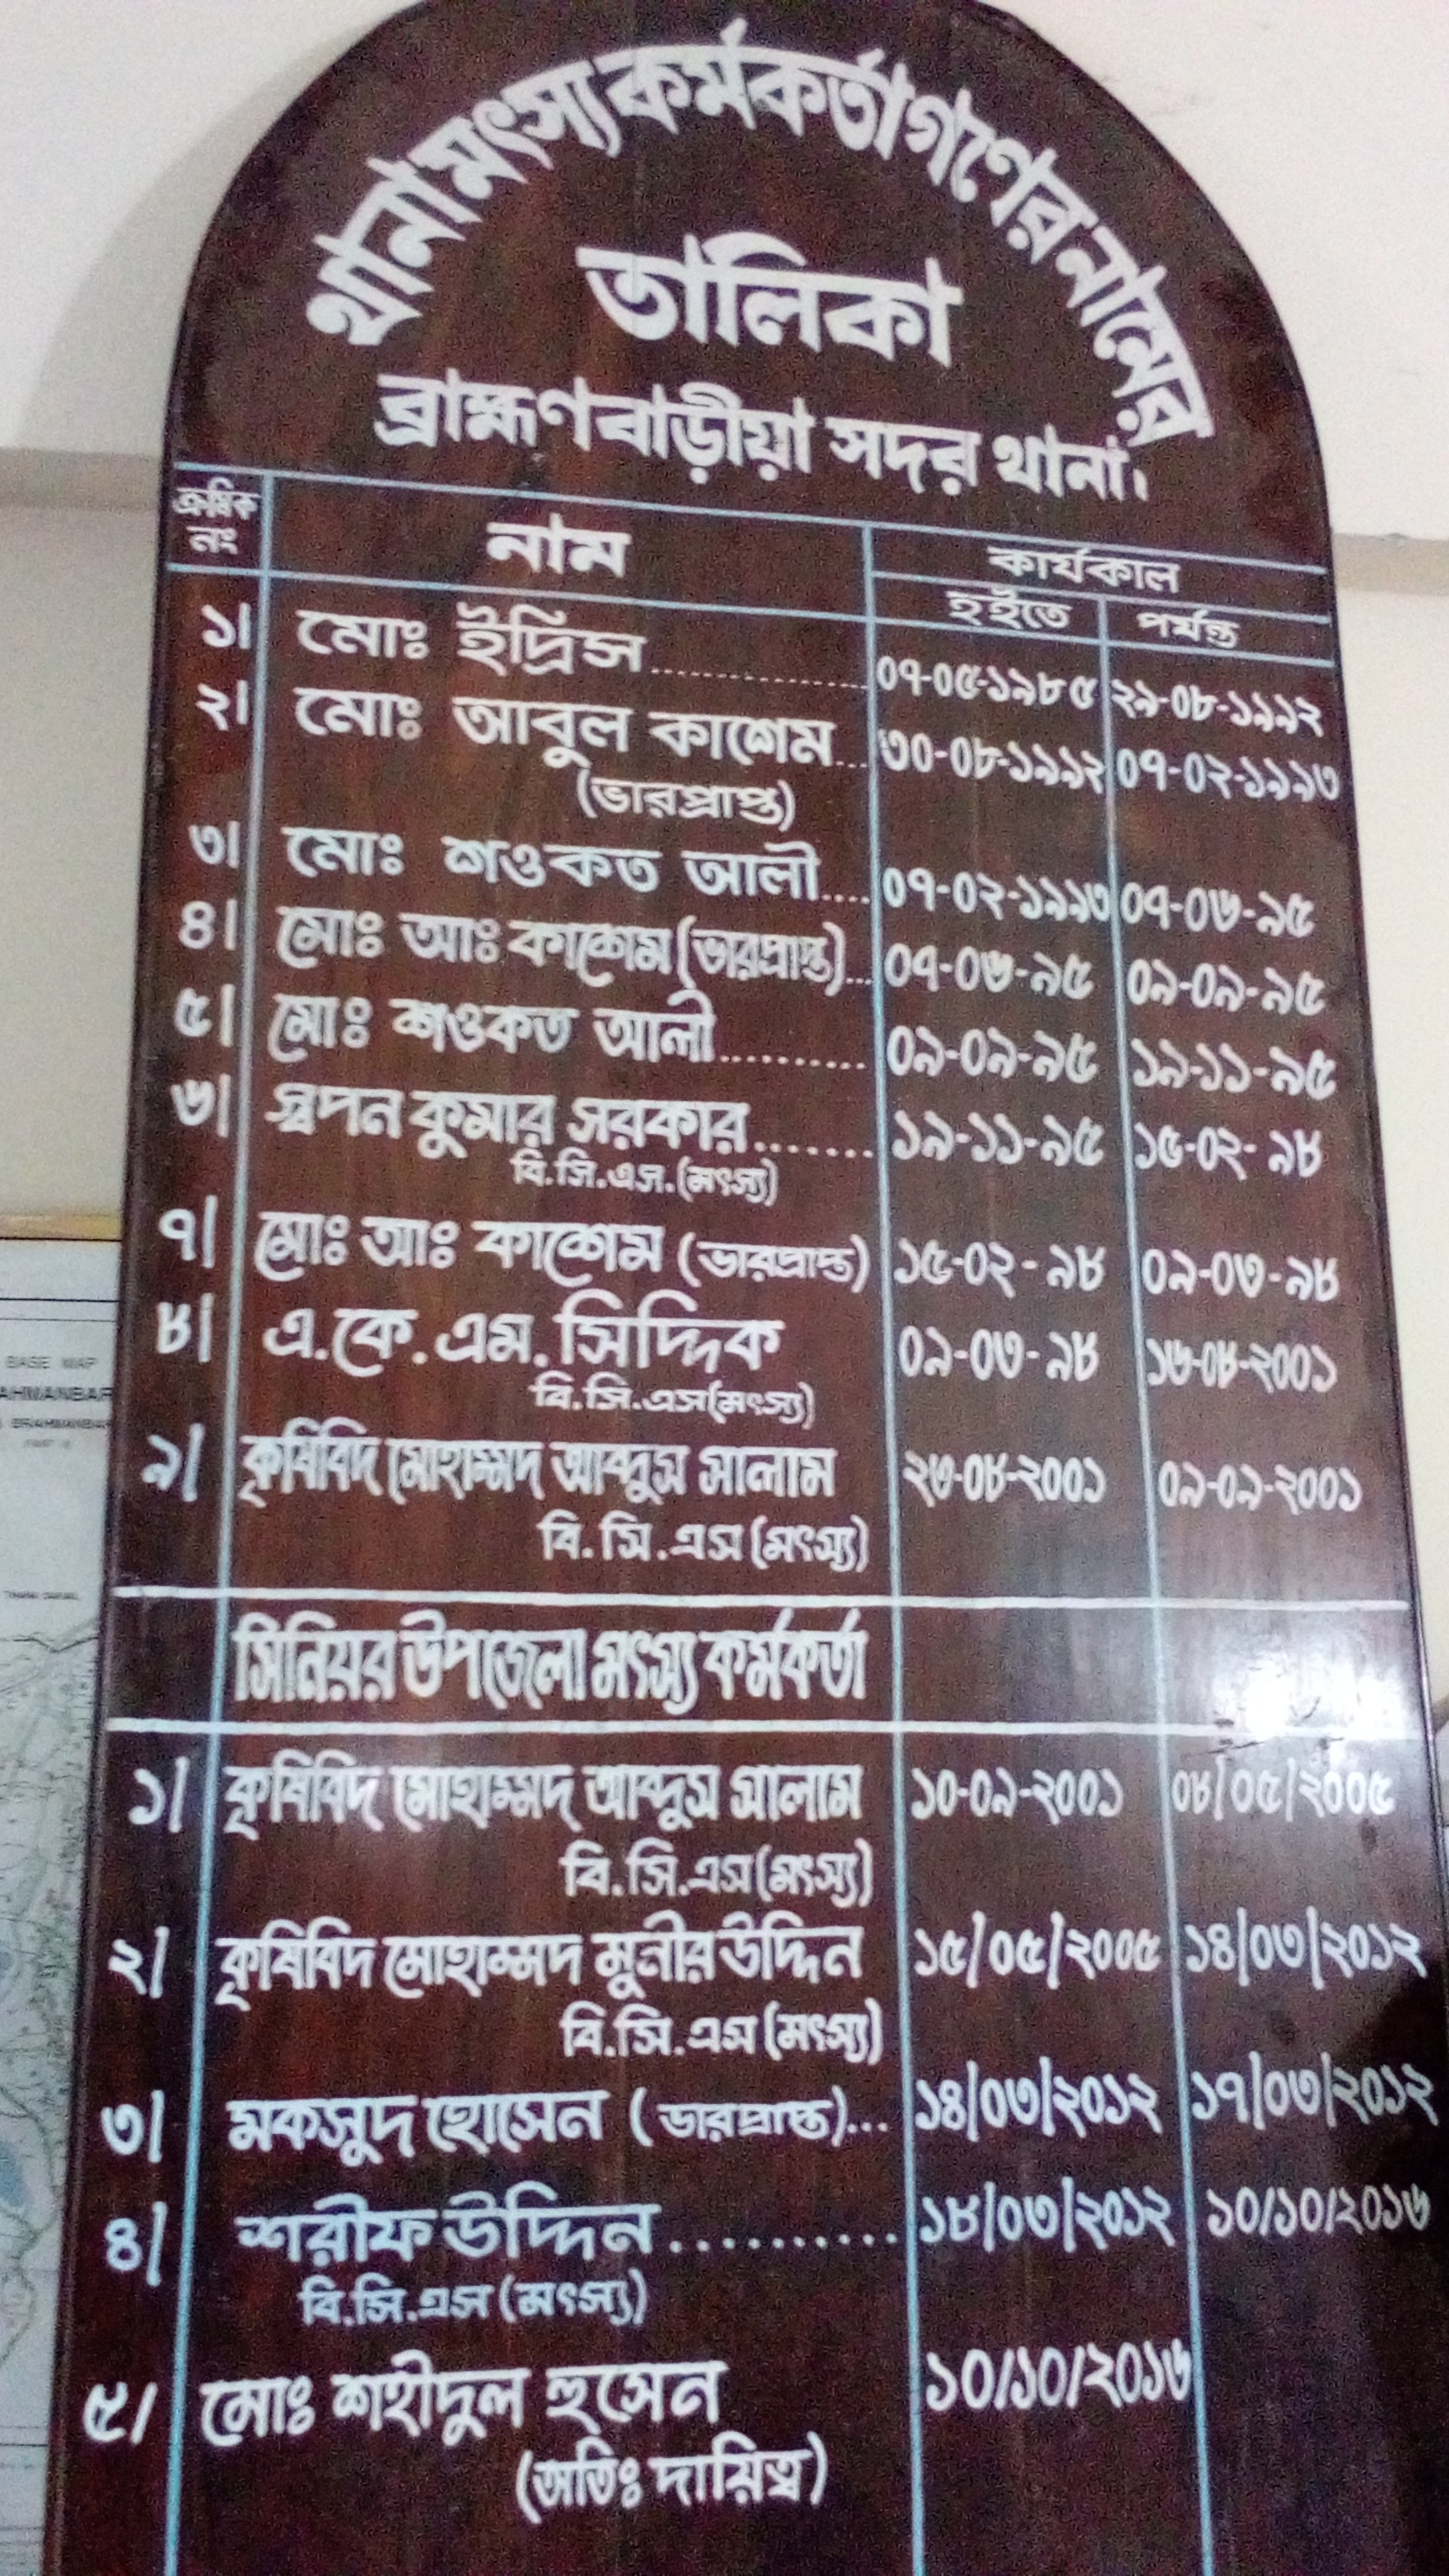 থানা মৎস্য কর্মকর্তাগণের নামের
তালিকা
ব্রাহ্মণবাড়ীয়া সদর থানা।
ক্রমিক নং নাম কার্যকাল
হইতে পর্যন্ত
১। মোঃ ইদ্রিস.................. ০৭-০৫-১৯৮৫ ২৯-০৮-১৯৯২
২। মোঃ আবুল কাশেম... ৩০-০৮-১৯৯২ ০৭-০২-১৯৯৩
(ভারপ্রাপ্ত)
৩। মোঃ শওকত আলী.... ০৭-০২-১৯৯৩ ০৭-০৬-৯৫
৪। মোঃ আঃ কাশেম (ভারপ্রাপ্ত)... ০৭-০৬-৯৫ ০৯-০৯-৯৫
৫। মোঃ শওকত আলী.......... ০৯-০৯-৯৫ ১৯-১১-৯৫
৬। স্বপন কুমার সরকার....... ১৯-১১-৯৫ ১৫-০২-৯৮
বি.সি.এস.(মৎস্য)
৭। মোঃ আঃ কাশেম (ভারপ্রাপ্ত) ১৫-০২-৯৮ ০৯-০৩-৯৮
৮। এ.কে.এম. সিদ্দিক ০৯-০৩-৯৮ ১৬-০৮-২০০১
বি.সি.এস(মৎস্য)
৯। কৃষিবিদ মোহাম্মদ আব্দুস সালাম ২৩-০৮-২০০১ ০৯-০৯-২০০১
বি.সি.এস (মৎস্য)
সিনিয়র উপজেলা মৎস্য কর্মকর্তা
১। কৃষিবিদ মোহাম্মদ আব্দুস সালাম ১০-০৯-২০০১ ০৮/০৫/২০০৫
বি.সি.এস (মৎস্য)
২। কৃষিবিদ মোহাম্মদ মুনীর উদ্দিন ১৫/০৫/২০০৫ ১৪/০৩/২০১২
বি.সি.এস (মৎস্য)
৩। মকসুদ হোসেন (ভারপ্রাপ্ত)... ১৪/০৩/২০১২ ১৭/০৩/২০১২
৪। শরীফ উদ্দিন.......... ১৮/০৩/২০১২ ১০/১০/২০১৬
বি.সি.এস (মৎস্য)
৫/ মোঃ শহীদুল হুসেন ১০/১০/২০১৬
(অতিঃ দায়িত্ব)
BASE MAP